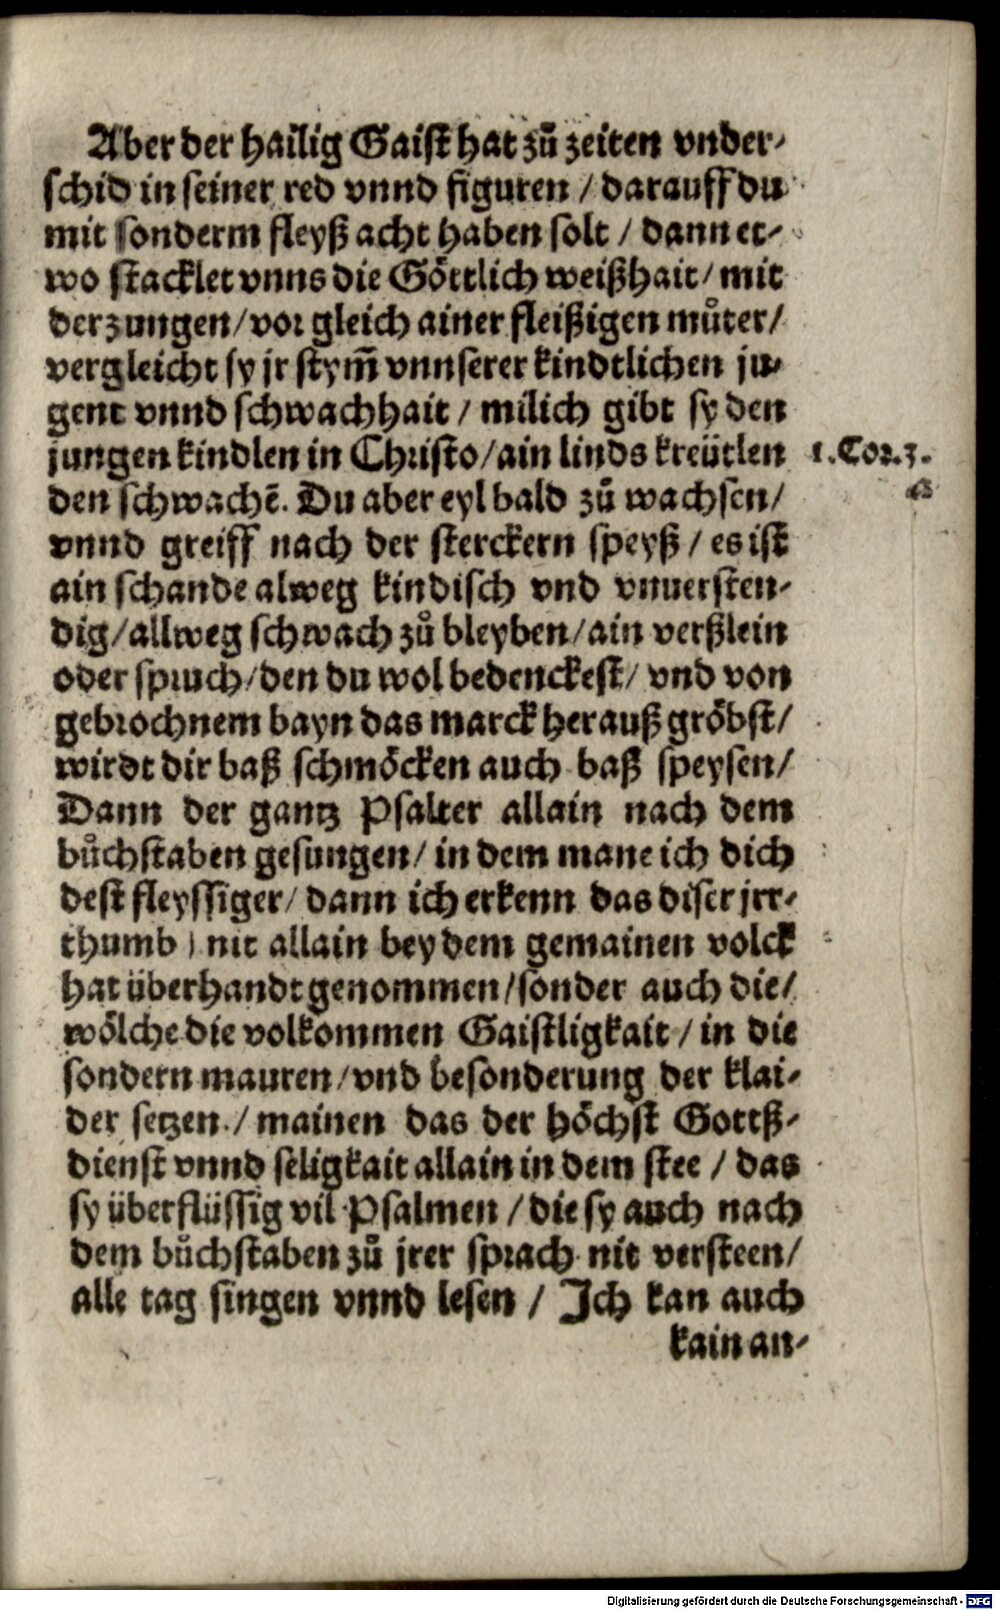 Aber der hailig Gaist hat zů zeiten vnder-
schid in seiner red vnnd figuren / darauff du
mit sonderm fleyß acht haben solt / dann et-
wo stacklet vnns die Göttlich weißhait / mit
der zungen / vor gleich ainer fleißigen můter /
vergleicht sy jr stym̃ vnnserer kindtlichen ju-
gent vnnd schwachhait / milich gibt sy den
jungen kindlen in Christo / ain linds kreütlen
1.Cor.3.
den schwachẽ. Du aber eyl bald zů wachsen /
vnnd greiff nach der sterckern speyß / es ist
ain schande alweg kindisch vnd vnuersten-
dig / allweg schwach zů bleyben / ain verßlein
oder spruch / den du wol bedenckest / vnd von
gebrochnem bayn das marck herauß gröbst /
wirdt dir baß schmöcken auch baß speysen /
Dann der gantz Psalter allain nach dem
bůchstaben gesungen / in dem mane ich dich
dest fleyssiger / dann ich erkenn das diser jrr-
thumb ) nit allain bey dem gemainen volck
hat überhandt genommen / sonder auch die /
wölche die volkommen Gaistligkait / in die
sondern mauren / vnd besonderung der klai-
der setzen. / mainen das der höchst Gottß-
dienst vnnd seligkait allain in dem stee / das
sy überflüssig vil Psalmen / die sy auch nach
dem bůchstaben zů jrer sprach nit versteen /
alle tag singen vnnd lesen / Ich kan auch
kain an-
Digitalisierung gefördert durch die Deutsche Forschungsgemeinschaft - DFG